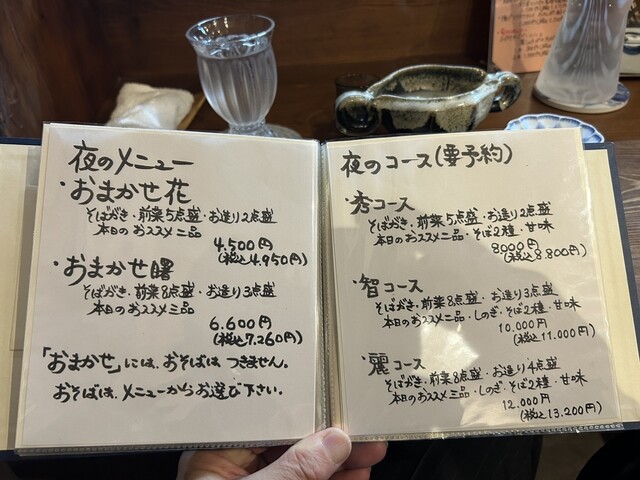 夜のメニュー
・おまかせ花
そばがき・前菜5点盛・お造り2点盛
本日のおススメ二品
4.500円
(税込4.950円)
・おまかせ曙
そばがき・前菜8点盛・お造り3点盛
本日のおススメ三品
6.600円
(税込7.260円)
「おまかせ」には、おそばは つきません。
おそばは、メニューからお選び下さい。
夜のコース(要予約)
・秀コース
そばがき・前菜5点盛・お造り2点盛
本日のおススメ二品・そば2種・甘味
8000円
(税込8.800円)
・智コース
そばがき・前菜8点盛・お造り3点盛
本日のおススメ二品・しのぎ・そば2種・甘味
10.000円
(税込11.000円)
・麗コース
そばがき・前菜8点盛・お造り4点盛
本日のおススメ三品・しのぎ・そば2種・甘味
12.000円
(税込13.200円)